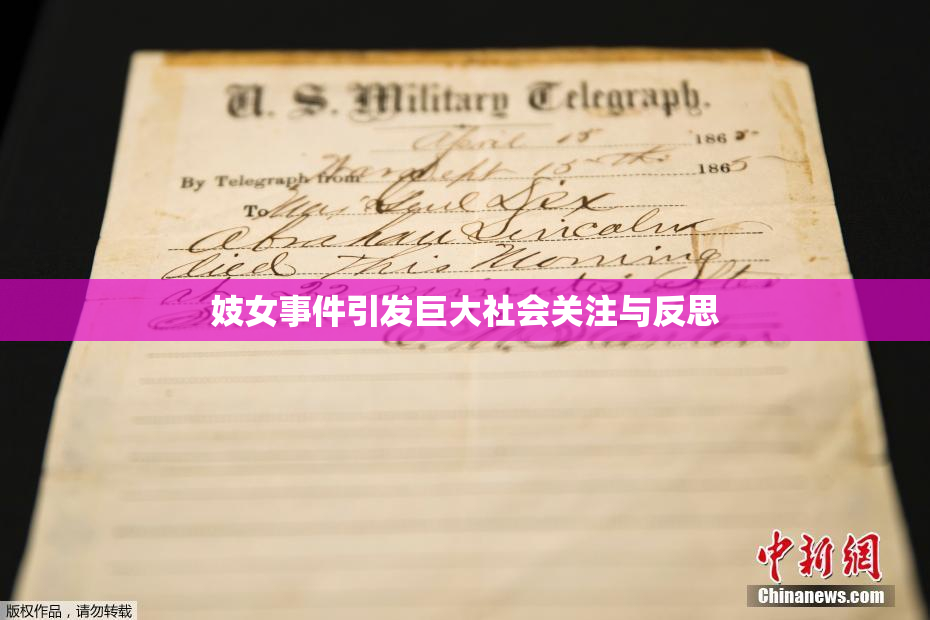 U. S. Military Telegraph.
April 15 1865
By Telegraph from War Dept 15th 1865
To Maj Genl Dix
Abraham Lincoln
died This Morning
at 22 minutes after
妓女事件引发巨大社会关注与反思
E. M. Stanton
中新網
Chinanews.com
版权作品,请勿转载